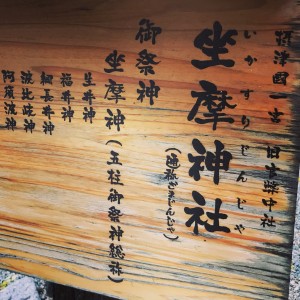 摂津国一宮 旧官幣中社
いかすりじんじゃ
坐摩神社
(通称ざまじんじゃ)
御祭神
坐摩神(五柱御祭神総称)
生井神
福井神
綱長井神
波比岐神
阿須波神